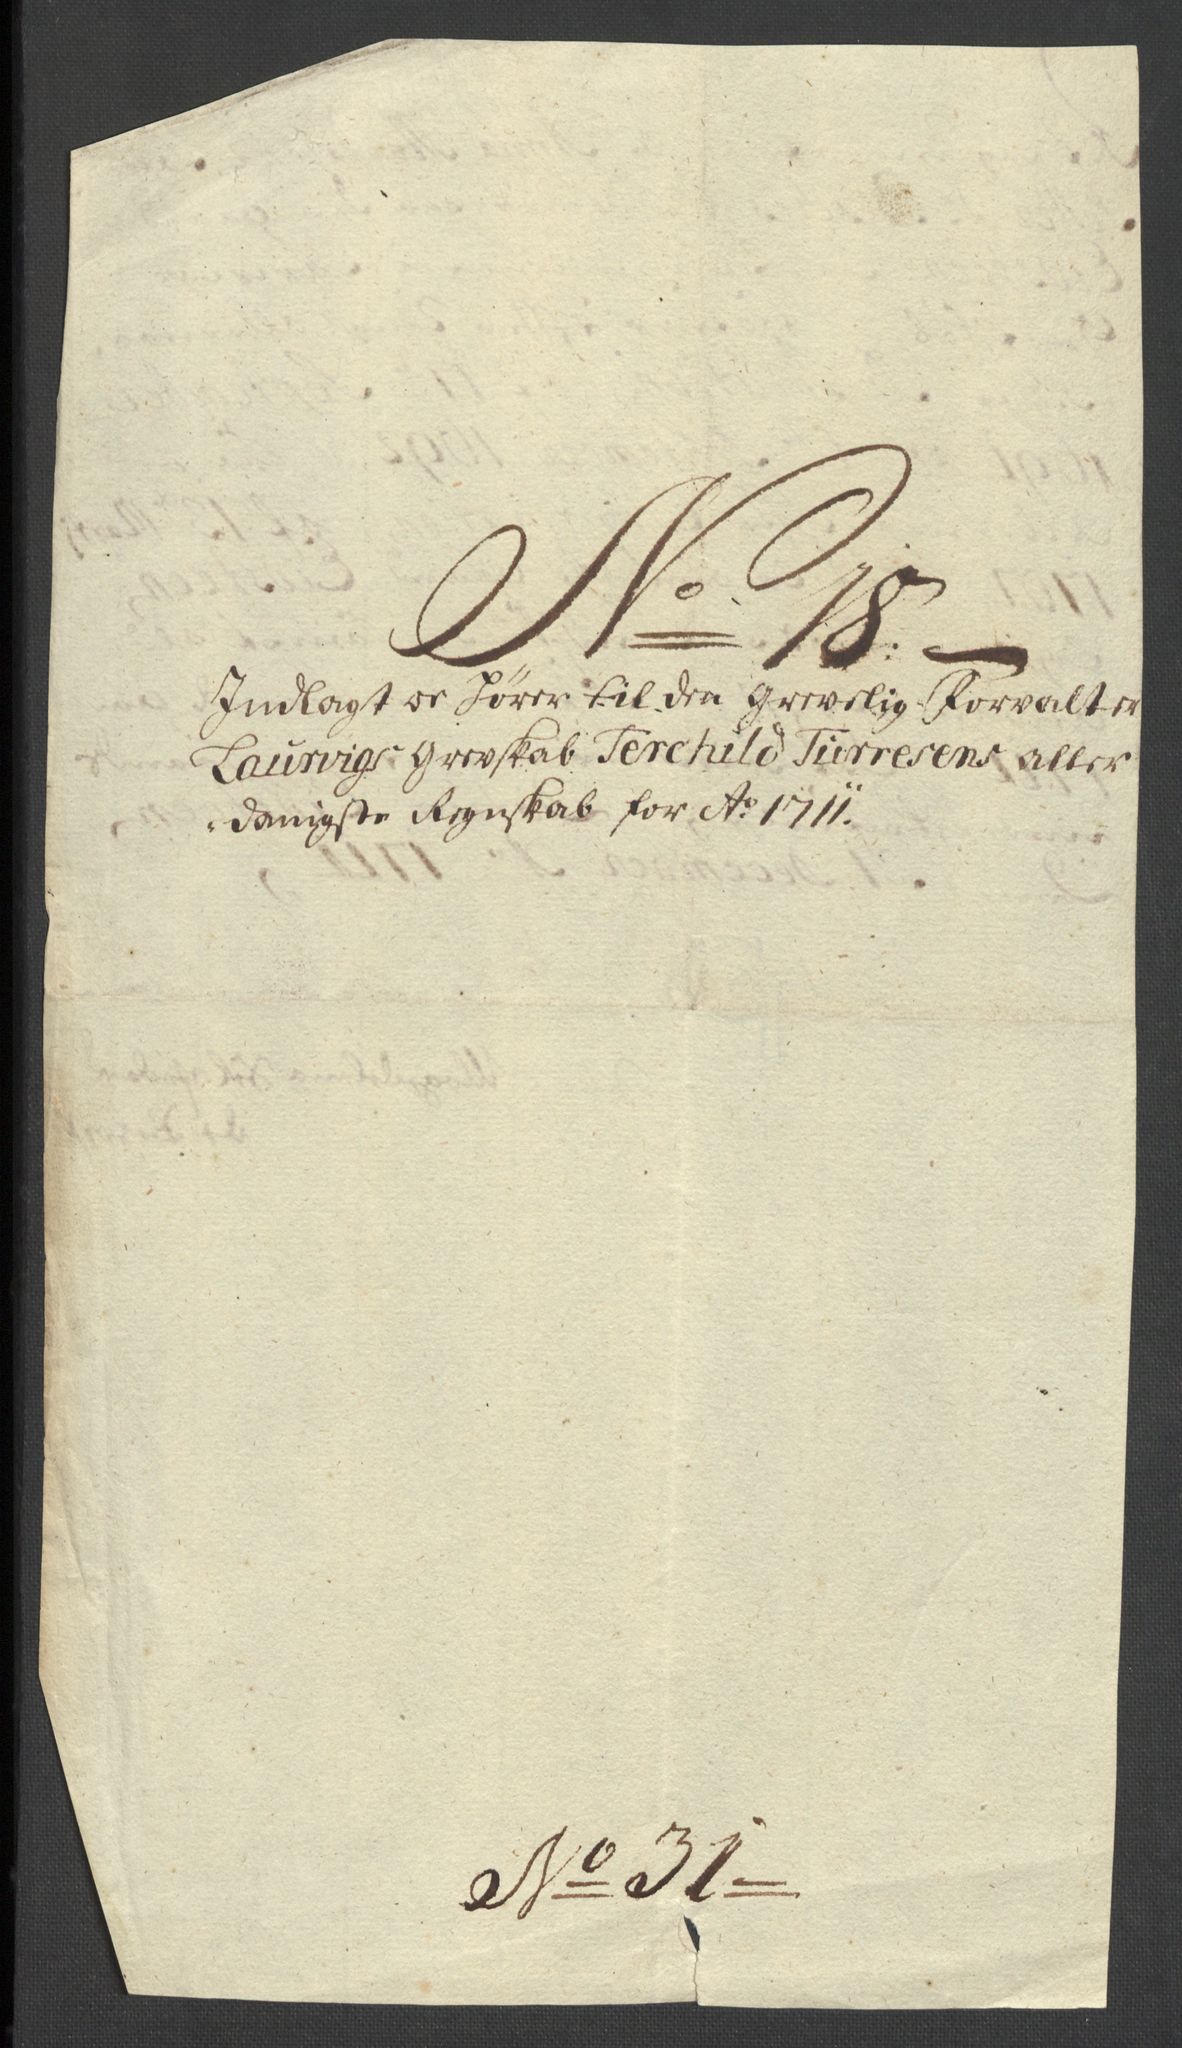 No 18.
Indlagt oc hører til den Grevelig Forvalter
Laurvigs Grevskab Terchild Turresens aller
danigste Regnskab for Ao 1711.
No 31